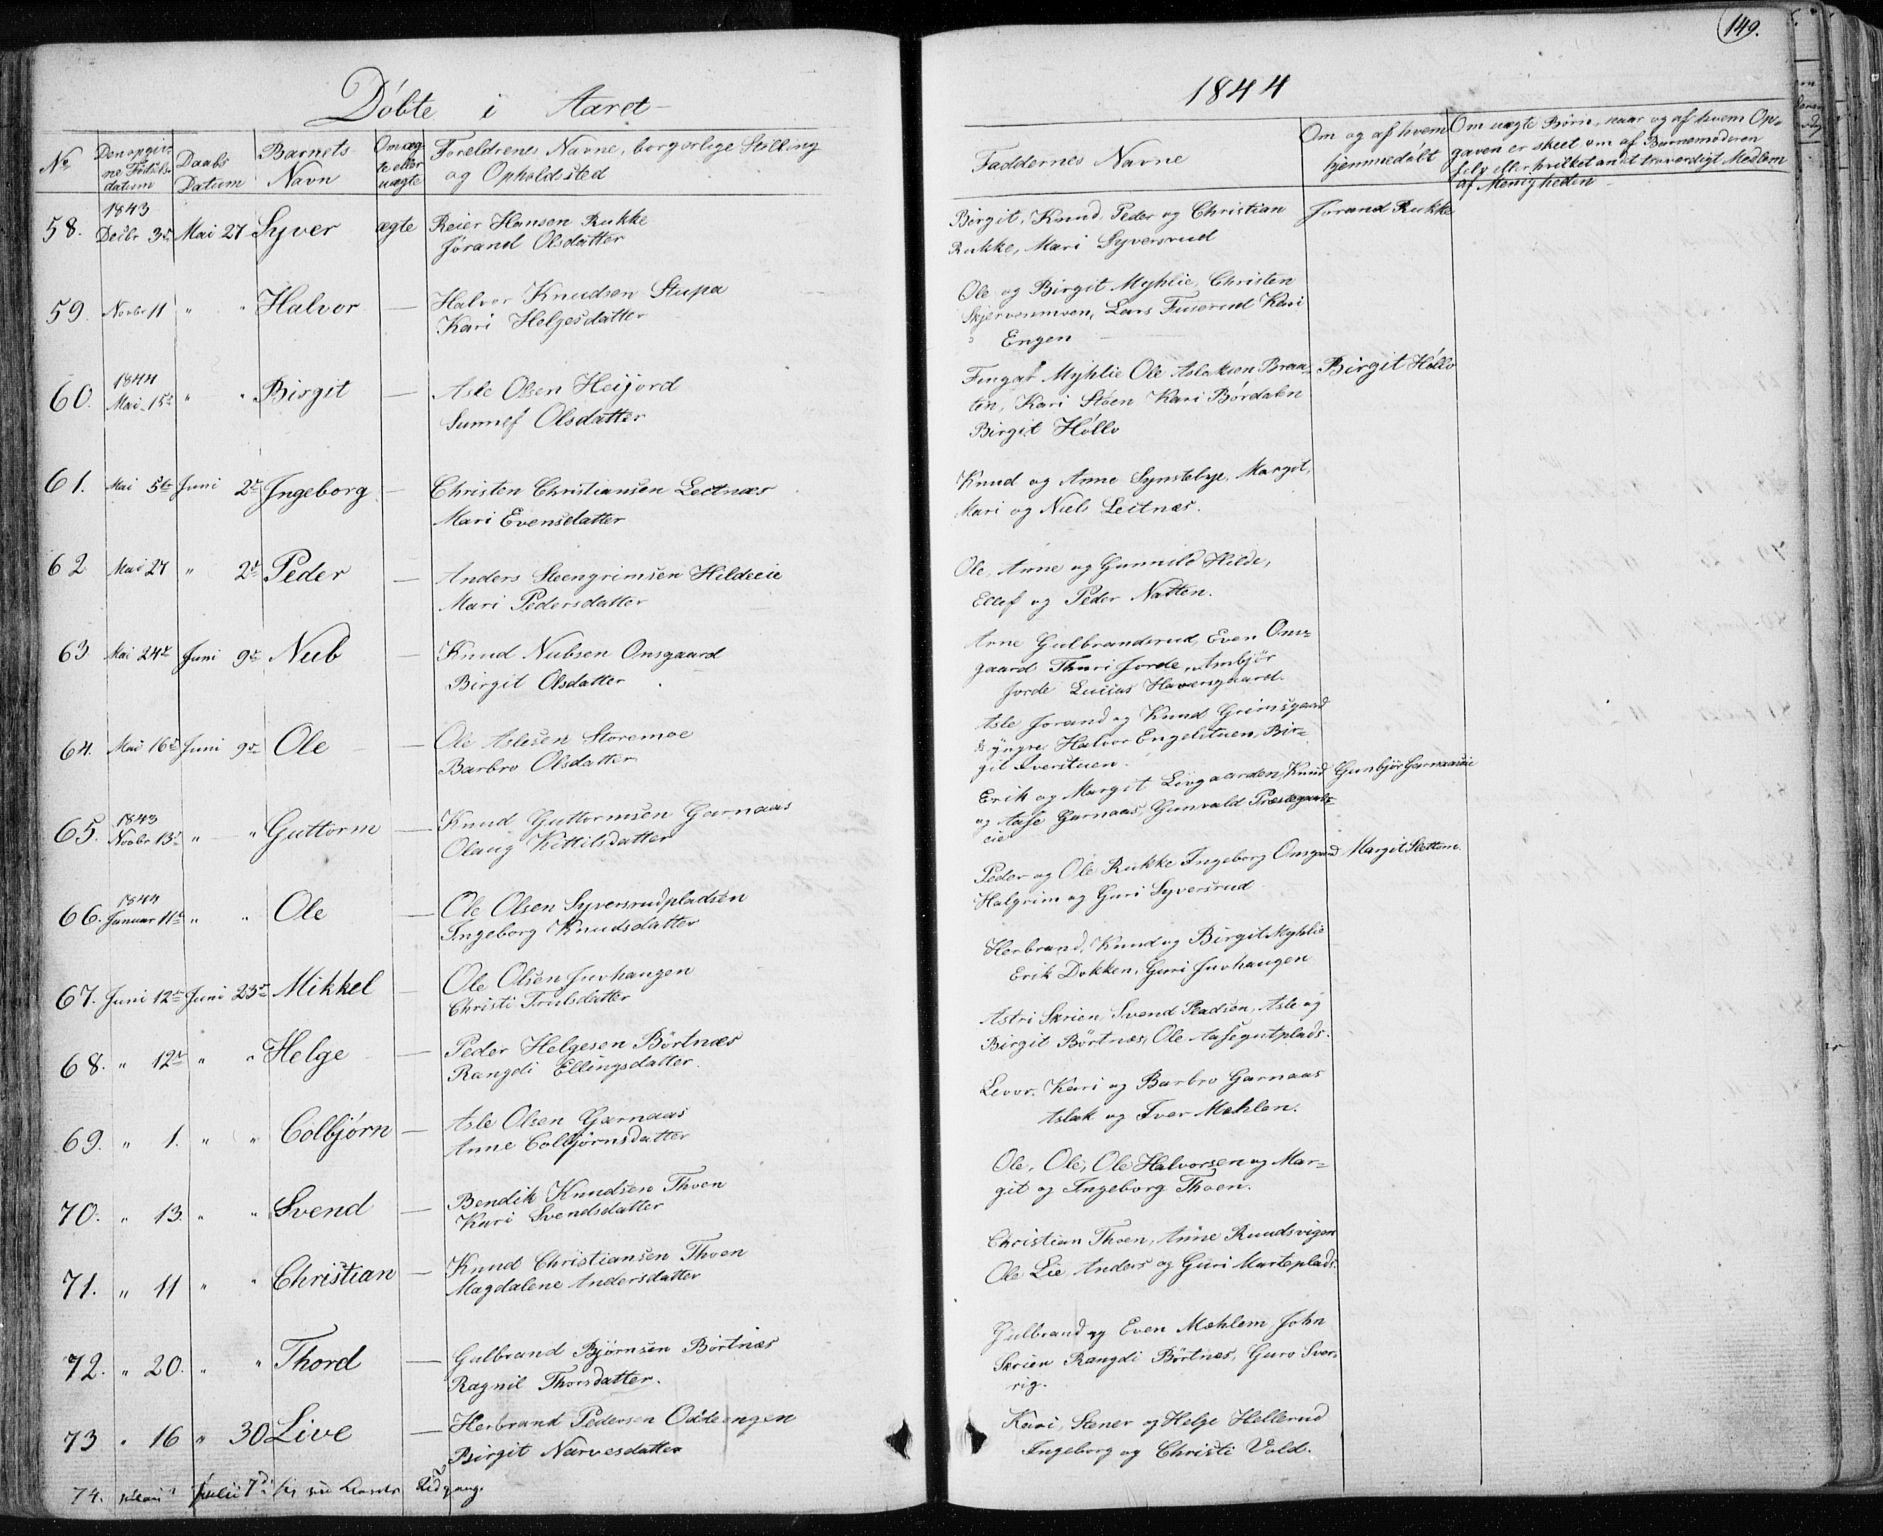 149.
Döbte i Aaret
1844
No
Den opgiv-
ne Födsels-
datum
Daabs
Datum
Barnets
Navn
Om æg-
te eller
uægte
Foreldrenes Navne, borgerlige Stilling
og Opholdsted
Faddernes Navne
Om og af hvem
hjemmedöbt
Om uægte Börn, naar og af hvem Op-
gaven er skeet om af Barnemoderen
selv eller hvilket andet troværdigt Medlem
af Menigheden
58. 1843 Decbr 3die Mai 27 Syver ægte Reier Hansen Rukke
Jörand Olsdatter
Birgit, Knud, Peder og Christian Jorand Rukke
Rukke, Mari Syversrud
59. Novbr 11 " " Halvor — Halvor Knudsen Stupa
Kari Helgesdatter
Ole og Birgit Myhlie, Christen
Skjervenmoen, Lars Fuserud Kari
Engen
60. 1844 Mai 15de " " Birgit — Asle Olsen Heijord
Sunnef Olsdatter
Fingar Myhlie Ole Aslaksen Braa- Birgit Höllo
ten, Kari Stoen Kari Bördalen
Birgit Höllo
61. Mai 5te Juni 2den Ingeborg — Christen Christiansen Leitnæs
Mari Evensdatter
Knud og Anne Synstebye, Margit,
Mari og Niels Leitnæs.
62 Mai 27 " 2den Peder — Anders Steengrimsen Hildeeie
Mari Pedersdatter
Ole, Anne og Gunnild Hilde,
Ellef og Peder Natten.
63 Mai 24de Juni 9de Nub — Knud Nubsen Onsgaard
Birgit Olsdatter
Arne Gulbrandsrud, Even Ons-
gaard Thuri Jorde, Ambjör
Jorde Lucias Havengaard.
64. Mai 16de Juni 9de Ole — Ole Aslesen Storemoe
Barbro Olsdatter
Asle Jorand og Knud Grimsgaard
d: yngre, Halvor Engelstuen, Bir-
git Iverstuen.
65. 1843 Novbr 13de " " Guttorm — Knud Guttormsen Garnaas
Olaug Kittilsdatter
Erik og Margit Livgaarden, Knud Gunbjör Garnaaseie
og Aase Garnaas, Gunvald Præstegaards-
eie
66. 1844 Januar 11te " " Ole — Ole Olsen Syversrudpladsen
Ingeborg Knudsdatter
Peder og Ole Rukke Ingeborg Onsgaard Margit Slettem
Halgrim og Guri Syversrud
67. Juni 12te Juni 23de Mikkel — Ole Olsen Juvhaugen
Christi Trulsdatter
Herbrand, Knud og Birgit Myhlie
Erik Dokken, Guri Juvhaugen
68. " 12te " " Helge — Peder Helgesen Börtnæs
Rangdi Ellingsdatter.
Astri Skrien, Svend Pladsen, Asle og
Birgit Börtnæs, Ole Aasegutplads.
69. " 1. " " Colbjörn — Asle Olsen Garnaas
Anne Colbjörnsdatter
Levor, Kari og Barbro Garnaas
Aslak og Iver Mæhlen.
70. " 13 " " Svend — Bendik Knudsen Thoen
Kari Svendsdatter
Ole, Ole, Ole Halvorsen og Mar-
git og Ingeborg Thoen.
71. " 11 " " Christian — Knud Christiansen Thoen
Magdalene Andersdatter
Christian Thoen, Anne Ruudsvigen
Ole Lie Anders og Guri Marteplads.
72. " 20. " " Thord — Gulbrand Bjørnsen Börtnæs
Ragnil Thorsdatter.
Gulbrand og Even Mæhlem John
Skrien Rangdi Börtnæs, Guro Sver-
rig.
73 " 16 " 30 Live — Herbrant Pedersen Oddeengen
Birgit Narvesdatter
Kari, Stener og Helge Hellerud
Ingeborg og Christi Vold.
74. Julii 7de